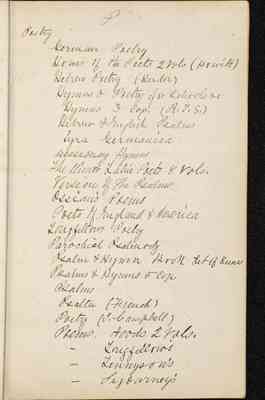 P
Poetry
German Poetry
Homes of the Poets 2 Vols (Howitt)
Hebrew Poetry (Herder)
Hymns & Poetry for Schools &c
Hymns 3 Cop. (R.T.S.)
Hebrew & English Psalms
Lyra Germanica
Missionary Hymns
The Minor Latin Poets 8 Vols.
Version of the Psalms
Ossian's Poems
Poets of England & America
Longfellows Poetry
Parochial Psalmody
Psalm & Hymn Book
Psalms & Hymns 5 Cop
Psalms
Psalter (French)
Poetry (T. Campbell)
Poems. Hoods 2 Vols.
- Longfellows
- Tennyson's
- Sigourney's